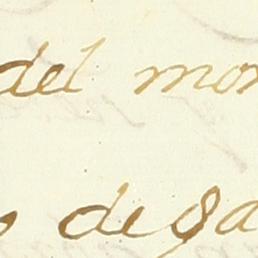 del mon
o de ga